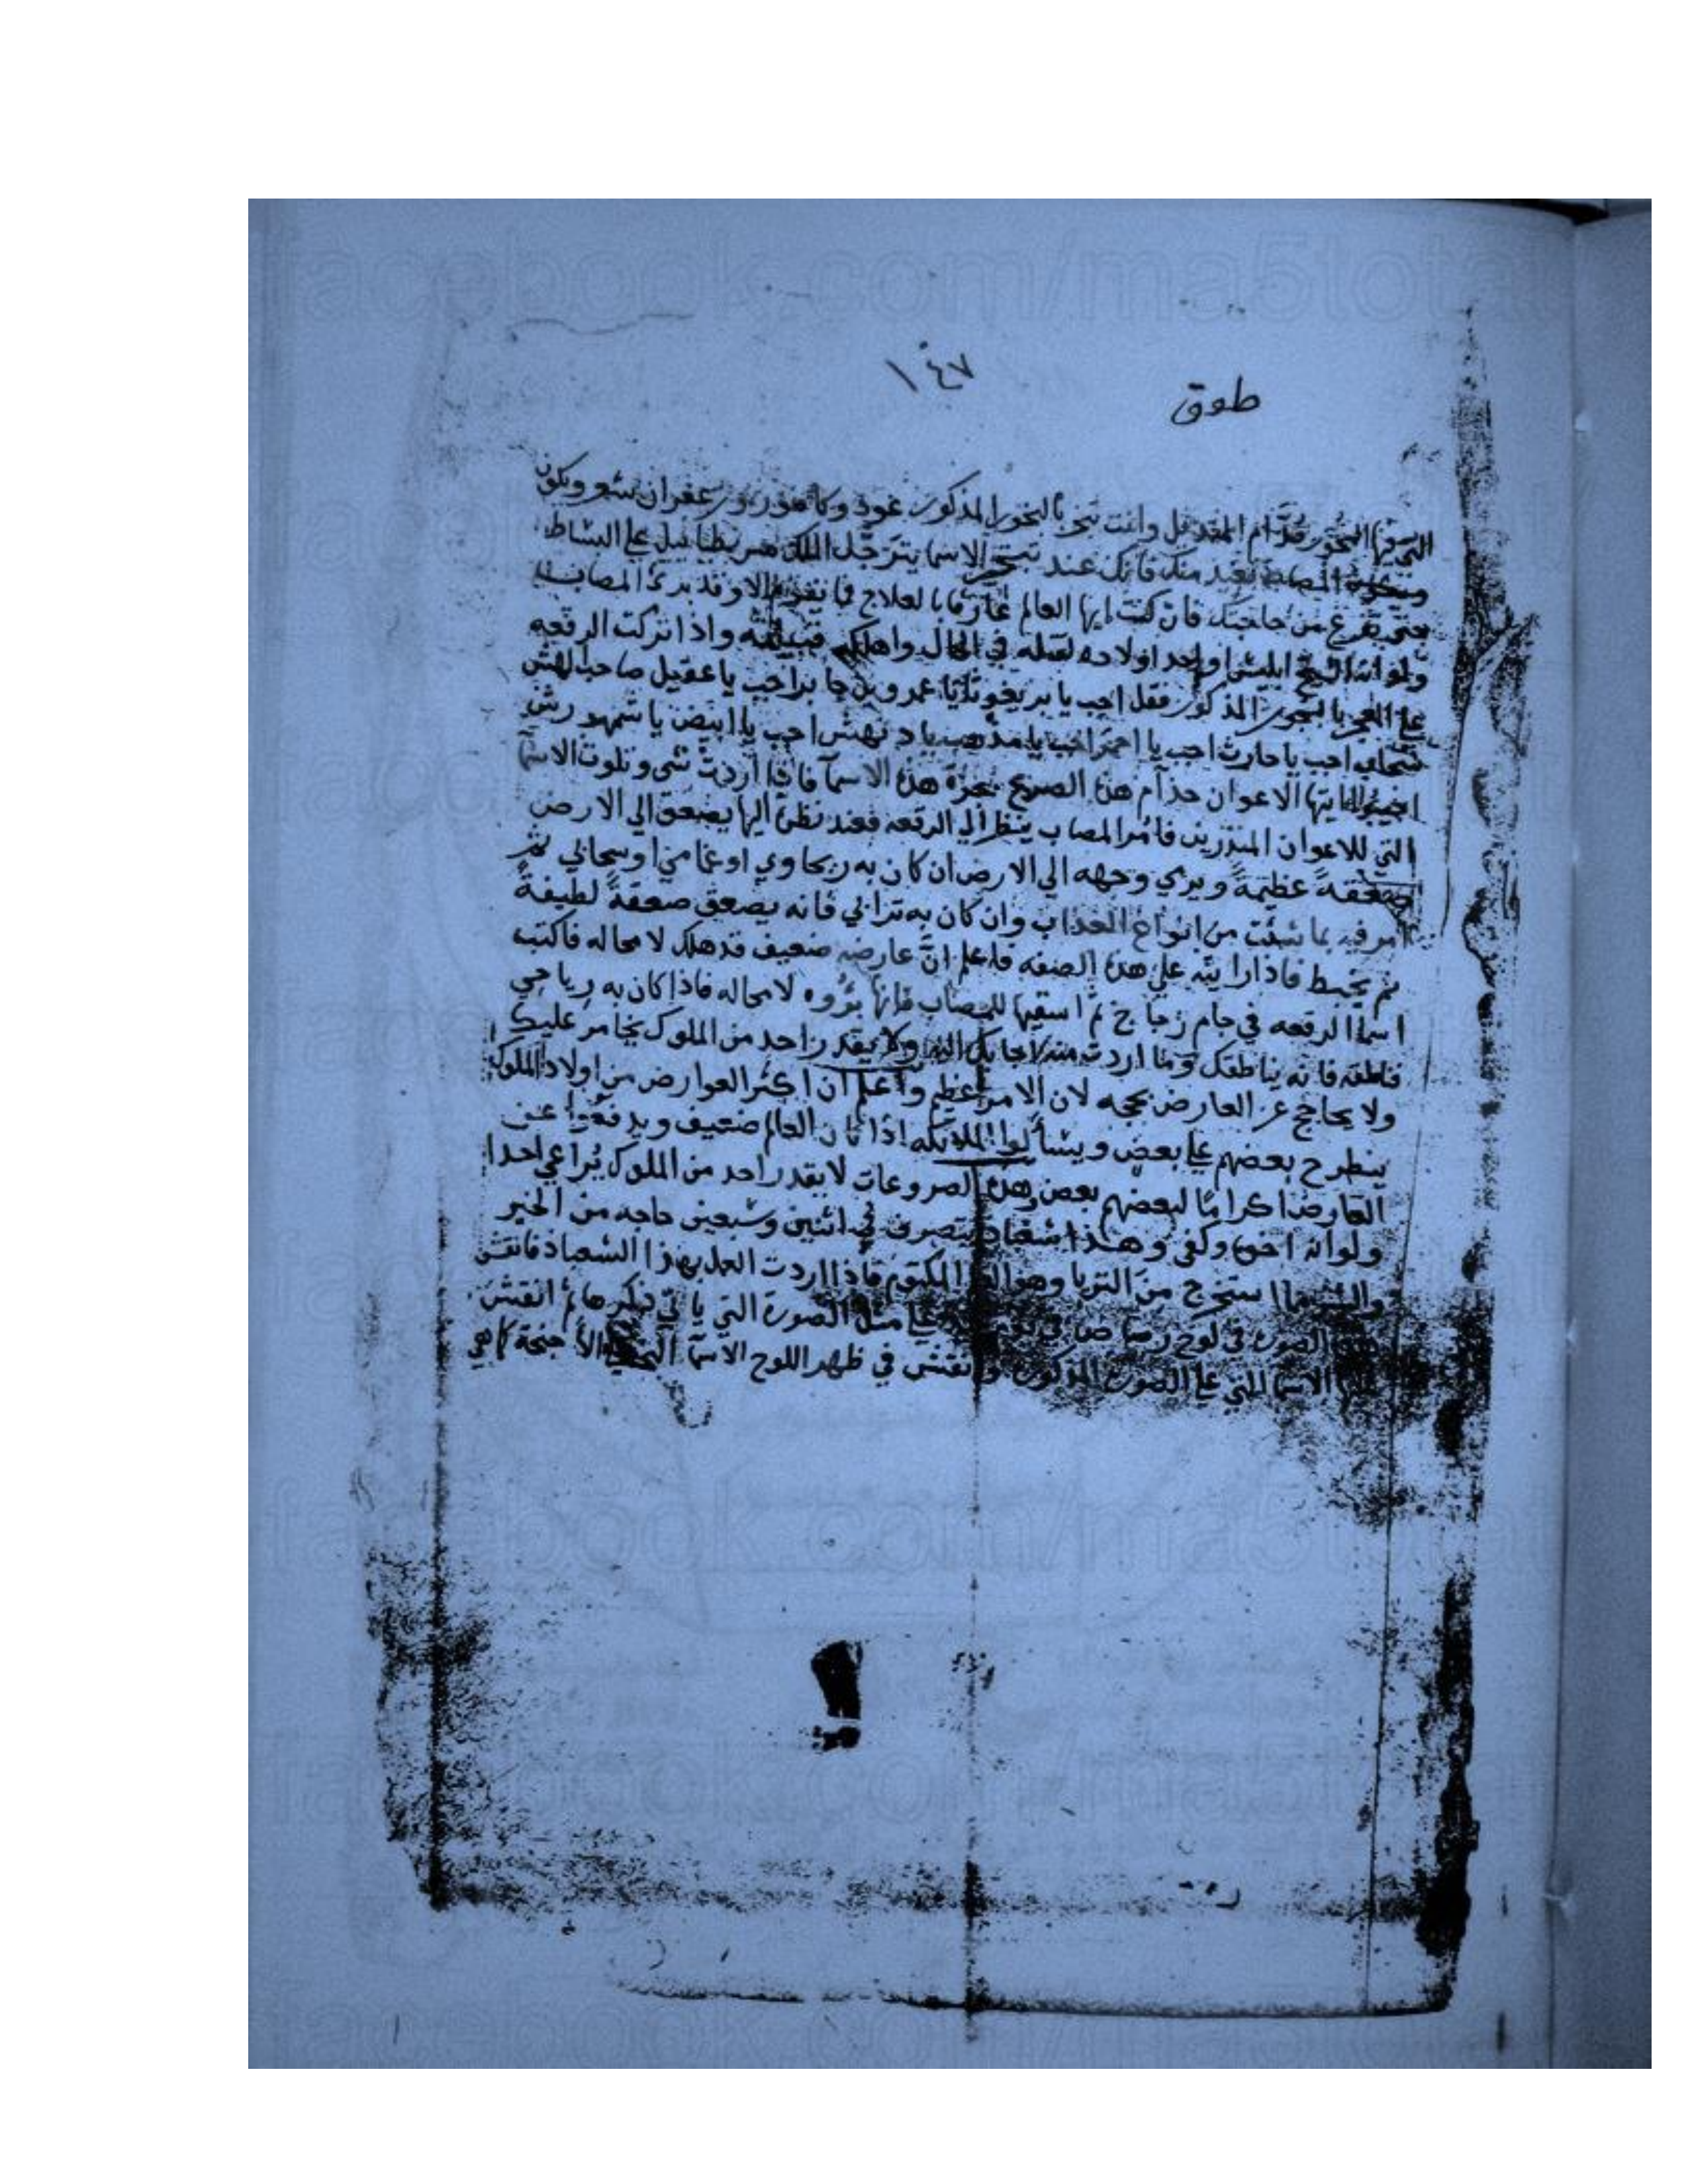 ١٤٧
طوق
البخور قدام المندل وانت تبخر بالبخور المذكور عود وكافور وزعفران شعر ويكون
بعيد منك فانك عند الاسما يترجل الملك على البساط
حتى تفرغ من حاجتك فان كنت ايها العالم عارفا بالعلاج فما الا وقد برئ المصاب
ولو انه ابليس او احد اولاده لقتله في الحال واهلكه واذا تركت الرقعه
على الجمر بالبخور المذكور فقل اجب يا يا عمرو بن جابر اجب يا عقيل صاحب
اجب يا حارث اجب يا احمر اجب يا مذهب يا دنهش اجب يا ابيض يا شمهورش
ايتها الاعوان خدام هذا الصرع بحق هذه الاسمآ فاذا اردت شي وتلوت الاسمآ
التي للاعوان المنذرين فامر المصاب ينظر الي الرقعه فعند نظره اليها يصعق الي الارض
صعقة عظيمة ويرمي وجهه الي الارض ان كان به ريحاوي او غمامي او سحابي ثم
امر فيه بما شئت من انواع العذاب وان كان به ترابي فانه يصعق صعقة لطيفة
ثم يخبط فاذا رايته على هذه الصفه فاعلم ان عارضه ضعيف قد هلك لا محاله فاكتب
اسمآ الرقعه في جام زجاج ثم اسقيها للمصاب فانها لا محاله فاذا كان به رياحي
فانطقه فانه يناطقك وما اردت منه اجابك اليه ولا يقدر احد من الملوك يخامر عليك
ولا يحاجج عن العارض بحجه لان الامر عظيم واعلم ان اكثر العوارض من اولاد الملوك
ينطرح بعضهم علي بعض ويسألوا الملايكه اذا كان العالم ضعيف ويدفعوا عن
العارض اكراما لبعضهم بعض وهذه الصروعات لا يقدر احد من الملوك يراعي احدا
ولو انه اخوه وكفى وهذا شعباذ يتصرف في اثنين وسبعين حاجه من الخير
والشر يستخرج من الثريا وهو المكتوم فاذا اردت العمل بهذا الشعباذ فانقش
الصوره في لوح رصاص في علي مثل الصورة التي ياتي ذكرها ثم انقش
الاسما التي علي الصوره المذكوره وانقش في ظهر اللوح الاسمآ الاجنحة كما هي
facebook.com/ma5totat